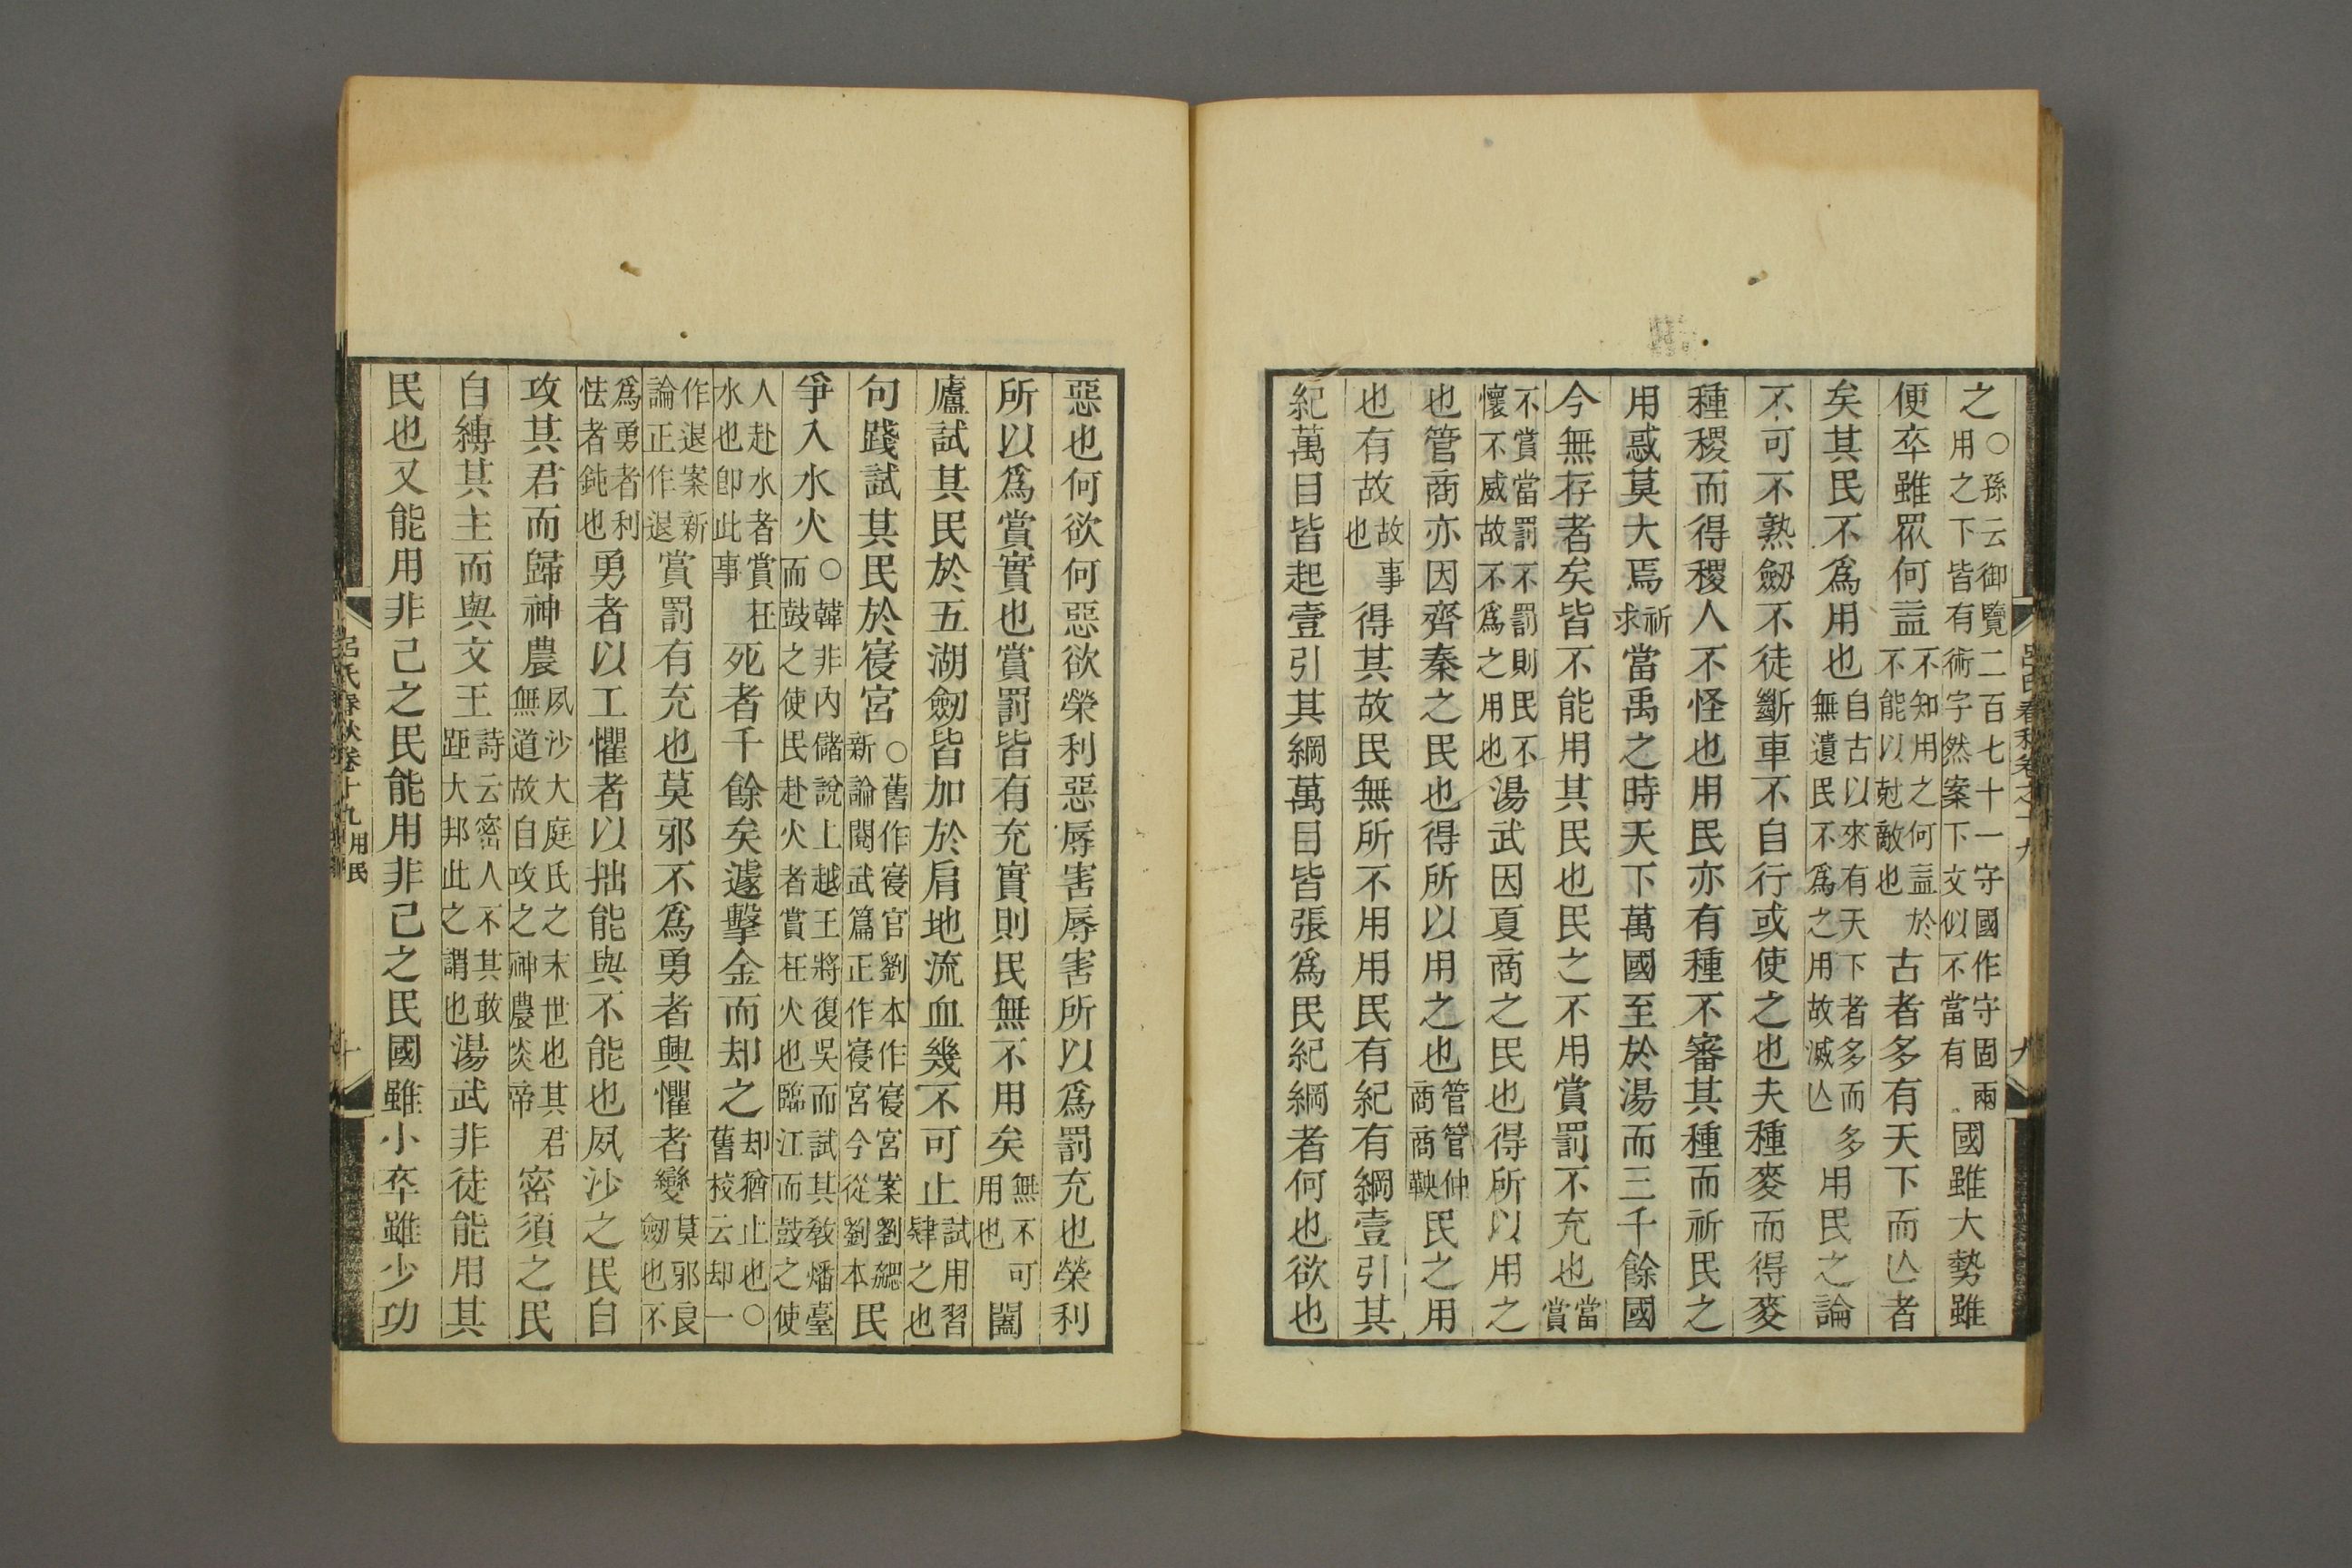 之○孫云御覽二百七十一守國作守固兩用之下皆有術字然案下文似不當有國雖大勢雖
便卒雖眾何益不知用之何益於不能以尅敵也古者多有天下而亾者
矣其民不爲用也自古以來有天下者多而多無遺民不爲之用故滅亾用民之論
不可不熟劒不徒斷車不自行或使之也夫種麥而得麥
種稷而得稷人不怪也用民亦有種不審其種而祈民之
用惑莫大焉祈求當禹之時天下萬國至於湯而三千餘國
今無存者矣皆不能用其民也民之不用賞罰不充也當賞
不賞當罰不罰則民不懷不威故不爲之用也湯武因夏商之民也得所以用之
也管商亦因齊秦之民也得所以用之也管管仲商商鞅民之用
也有故故事也得其故民無所不用用民有紀有綱壹引其
紀萬目皆起壹引其綱萬目皆張爲民紀綱者何也欲也
惡也何欲何惡欲榮利惡辱害辱害所以爲罰充也榮利
所以爲賞實也賞罰皆有充實則民無不用矣無不可用也闔
廬試其民於五湖劒皆加於肩地流血幾不可止試用習肄之也
句踐試其民於寑宮○舊作寑官劉本作寑宮案劉勰新論閱武篇正作寑宮今從劉本民
爭入水火○韓非內儲說上越王將復吳而試其敎燔臺而鼓之使民赴火者賞在火也臨江而鼓之使
人赴水者賞在水也卽此事死者千餘矣遽擊金而却之却猶止也○舊校云却一
作退案新論正作退賞罰有充也莫邪不爲勇者興懼者變莫邪良劒也不
爲勇者利怯者鈍也勇者以工懼者以拙能與不能也夙沙之民自
攻其君而歸神農夙沙大庭氏之末世也其君無道故自攻之神農炎帝密須之民
自縛其主而與文王詩云密人不其敢距大邦此之謂也湯武非徒能用其
民也又能用非己之民能用非己之民國雖小卒雖少功
呂氏春秋卷十九 用民 十